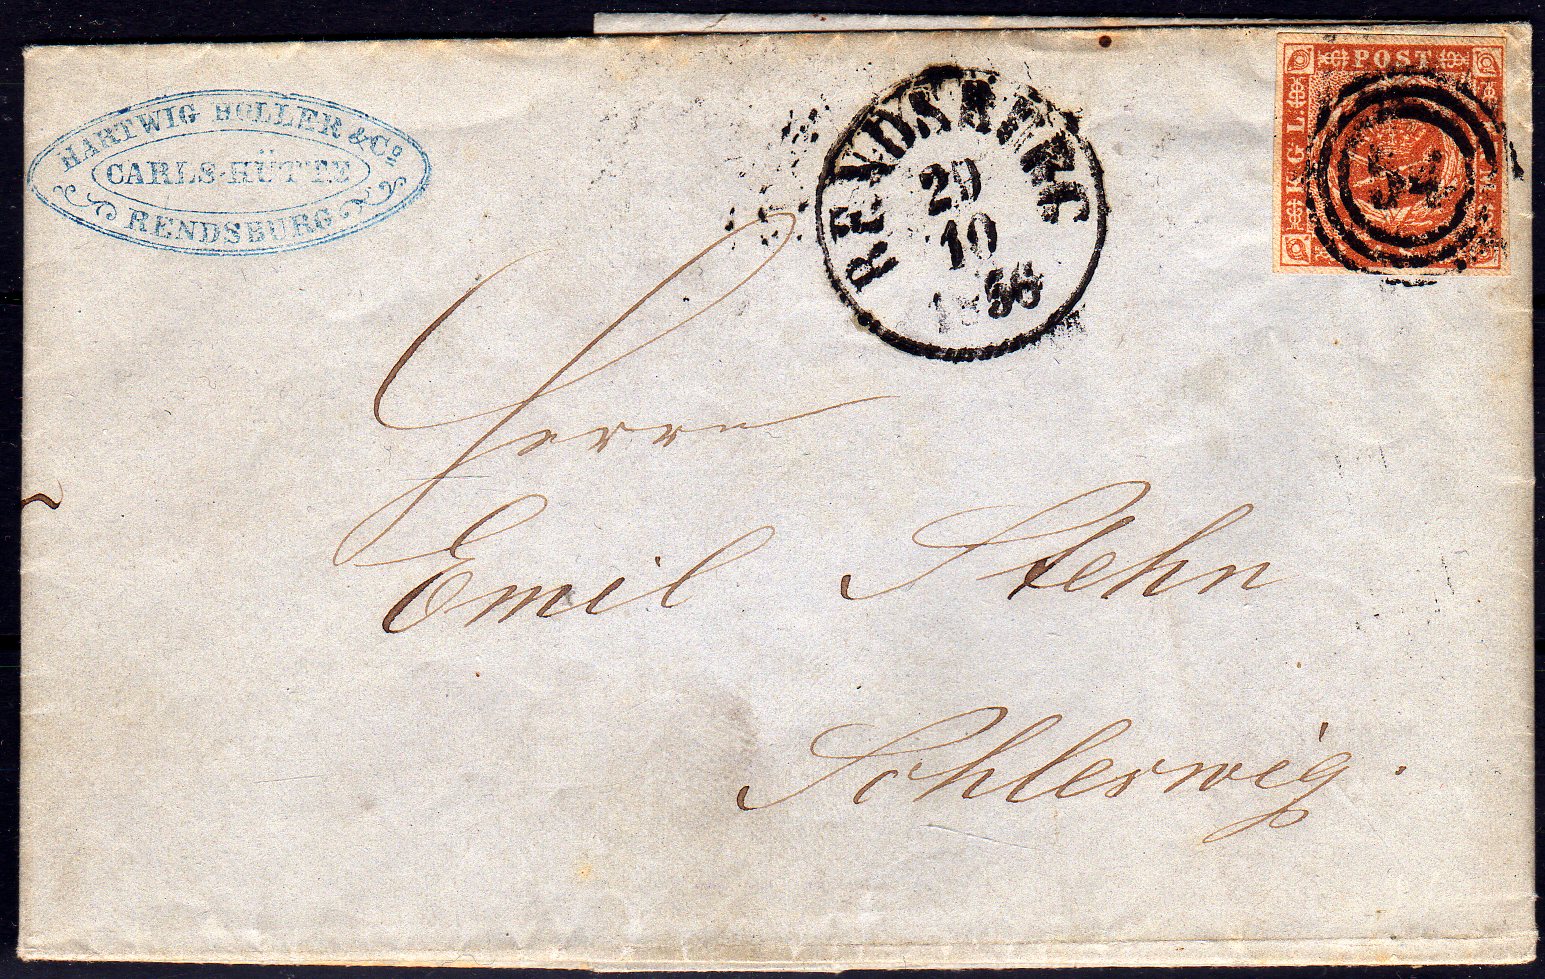 HARTWIG HOLLER & Co
CARLS-HÜTTE
RENDSBURG
RENDSBURG
29
10
1856
POST
KGL
Herrn
Emil Stehn
Schleswig.